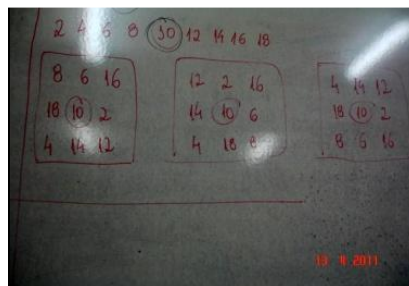 2 4 6 8 10 12 14 16 18
8 6 16
18 10 2
4 14 12
12 2 16
14 10 6
4 18 8
4 14 12
18 10 2
8 6 16
13 4 2011